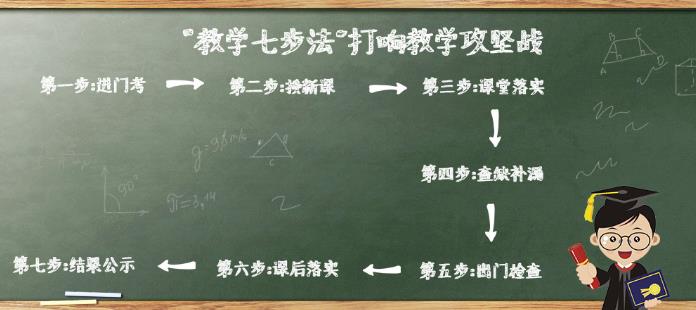 “教学七步法”打响教学攻坚战
第一步:进门考
第二步:授新课
第三步:课堂落实
第四步:查缺补漏
第五步:出门检查
第六步:课后落实
第七步:结果公示
A
B
C
D
g=9,8 m/s
c
90°
π=3,14